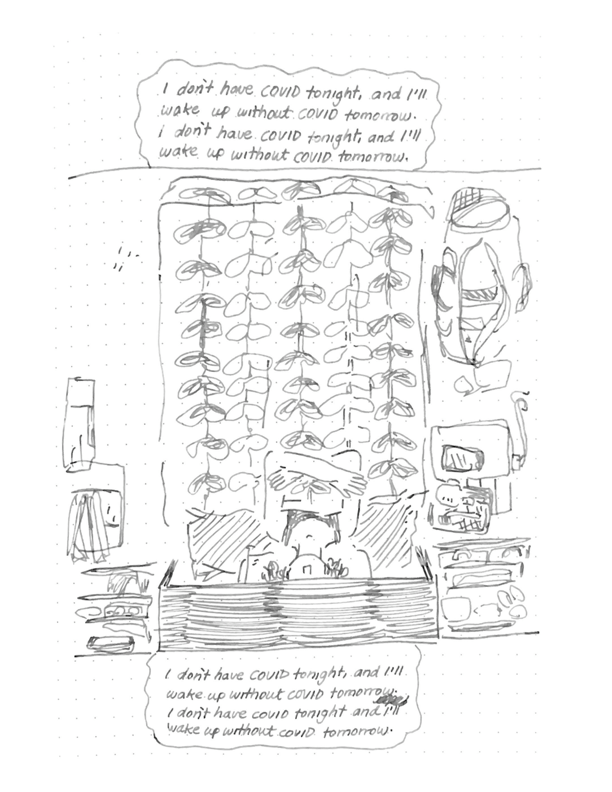 I don't have COVID tonight, and I'll
wake up without COVID tomorrow.
i don't have COVID tonight, and I'll
wake up without COVID tomorrow.
I don't have COVID tonight, and I'll
wake up without COVID tomorrow.
I don't have COVID tonight and I'll
wake up without COVID tomorrow.